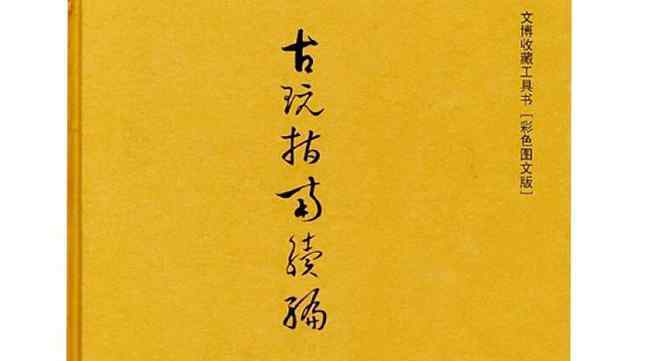 文博收藏工具书［彩色图文版］
古玩指南續編